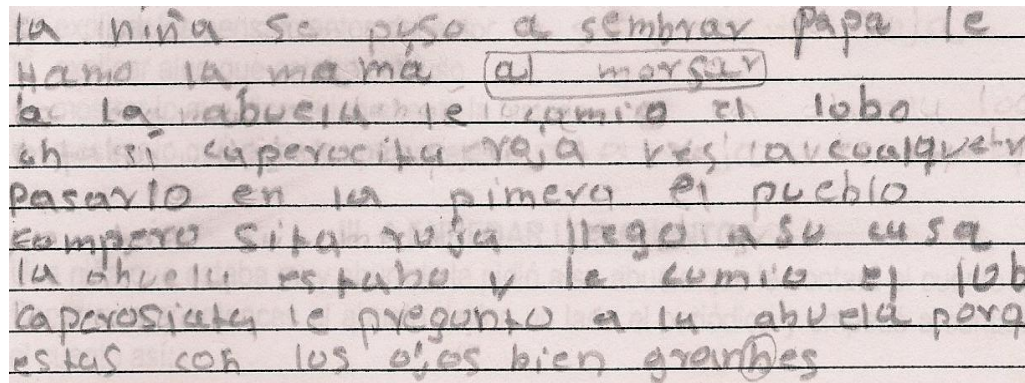 la niña se puso a sembrar papa le
llamo la mamá a morsar
a la abuela le comio el lobo
ah si caperocita roja
pasarlo en la pimera el pueblo
comperosita ruja llego a su casa
la abuela estabo y le comio el lob
caperosiata le pregunto a la abuela porq
estas con los ojos bien granhes